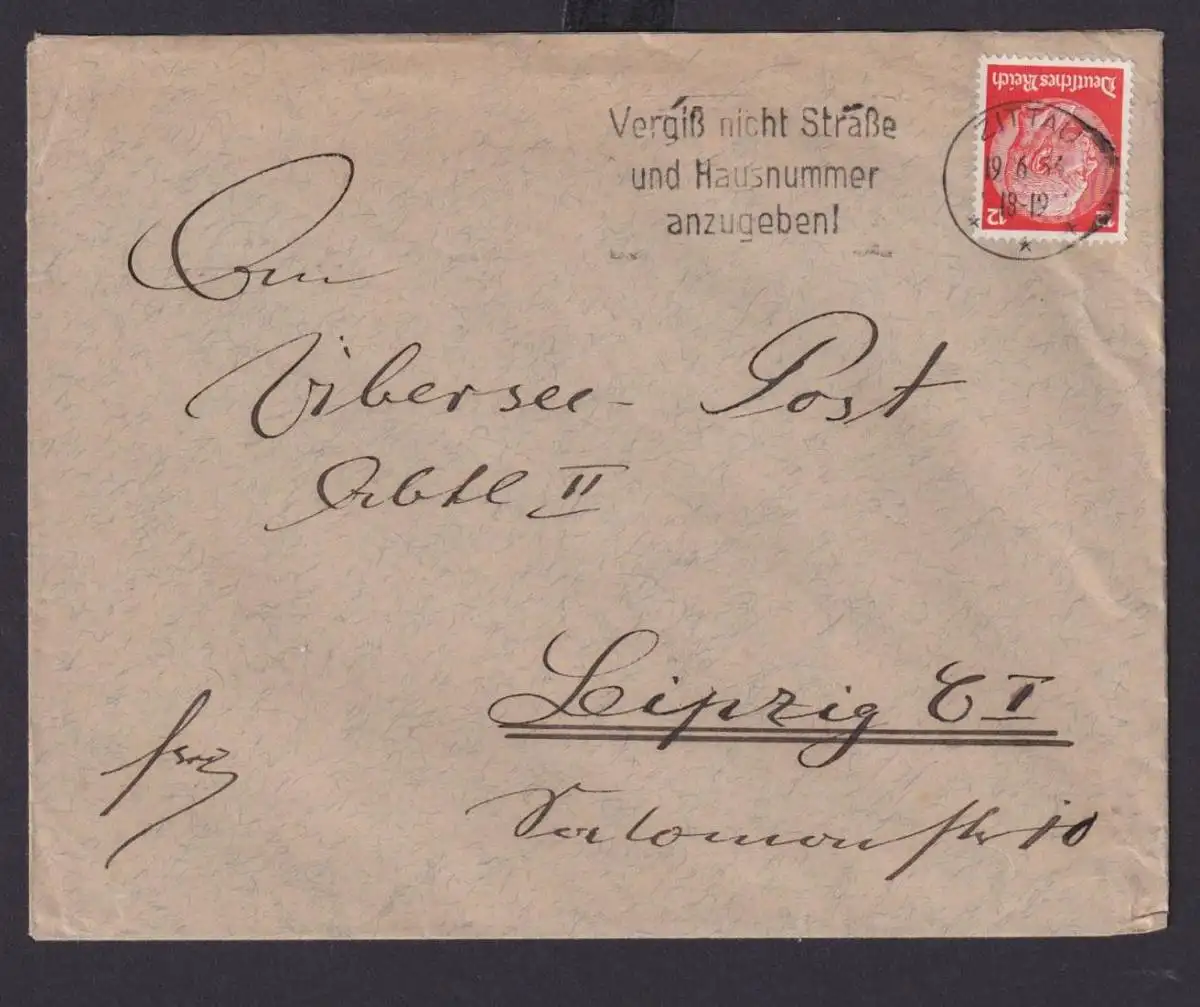 Vergiß nicht Straße
und Hausnummer
anzugeben!
Deutsches Reich
12
ZITTAU
19.6.
18-19
An
Übersee- Post
Abtl II
Leipzig C I
Salomonstr 10